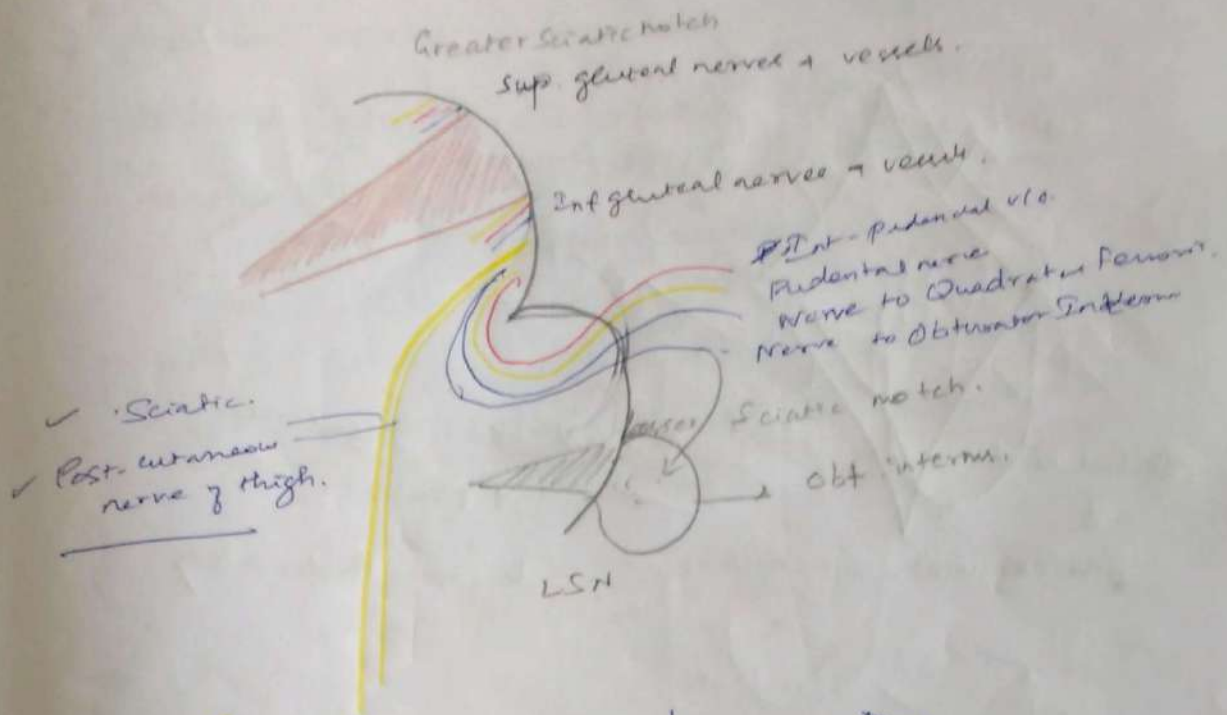 Greater Sciatic notch
Sup. gluteal nerves + vessels.
Inf gluteal nerves + vessels.
Int - Pudendal v/a.
Pudental nerve
Nerve to Quadratus Femoris.
Nerve to Obturator Internus
Sciatic.
Post-cutaneous
nerve of thigh.
Lesser Sciatic notch.
Obt internus.
LSN